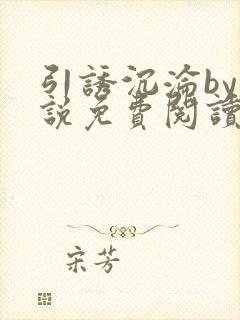 引誘沉淪by
說免費閱讀
宋芳